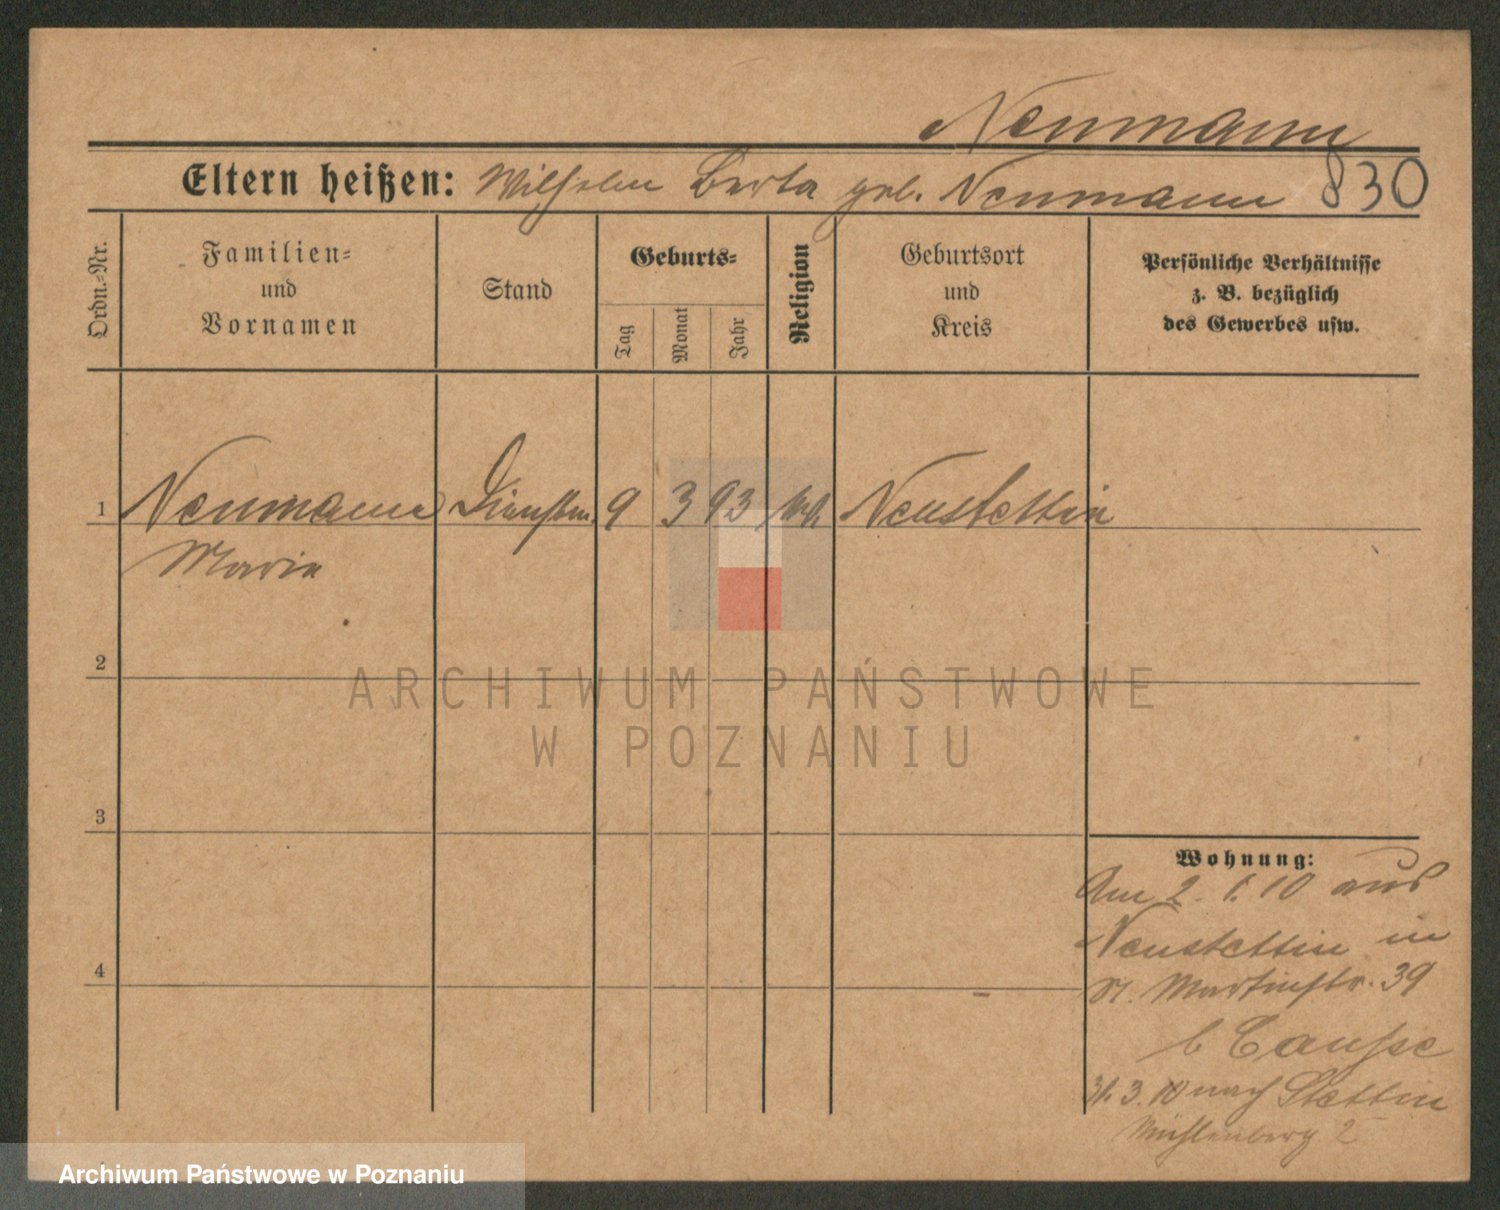 Neumann
Eltern heißen: Wilhelm Berta geb. Neumann 830
Ordn.-Nr.
Familien-
und
Vornamen
Stand
Geburts-
Tag
Monat
Jahr
Religion
Geburtsort
und
Kreis
Persönliche Verhältnisse
z. B. bezüglich
des Gewerbes usw.
1 Neumann Dienstm. 9 3 93 Neustettin
Marie
2
ARCHIWUM PAŃSTWOWE
W POZNANIU
3
Wohnung:
Am 2. 1. 10 aus
Neustettin in
St. Martinstr. 39
b
4
31. 3. 10 nach Stettin
Mühlenberg 2
Archiwum Państwowe w Poznaniu